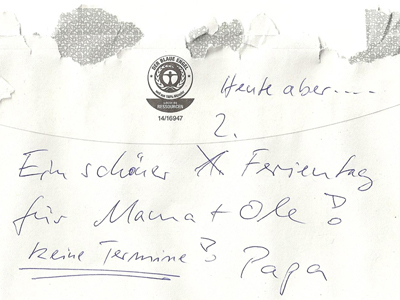 DER BLAUE ENGEL
SCHÜTZT
RESSOURCEN
14/16947
Heute aber.....
2.
Ein schöner X Ferientag
für Mama + Ole!
keine Termine!
Papa